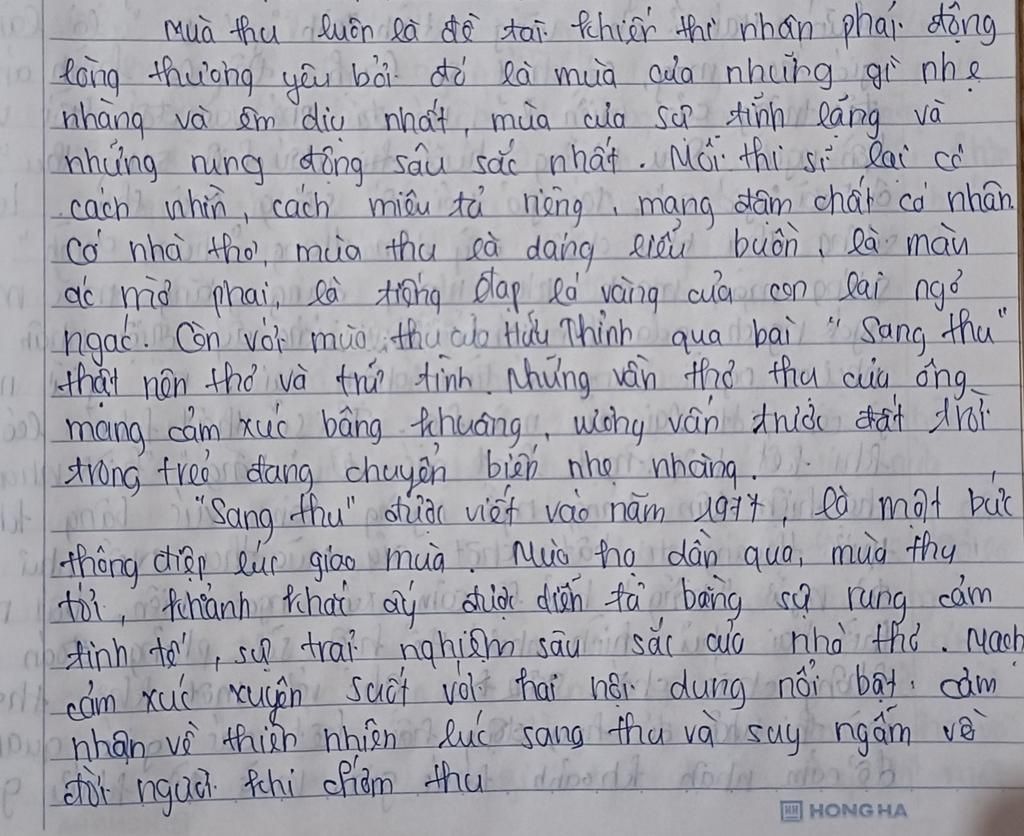 Mùa thu luôn là đề tài khiến thi nhân phải động
lòng thương yêu bởi đó là mùa của những gì nhẹ
nhàng và êm dịu nhất, mùa của sự tĩnh lặng và
những rung động sâu sắc nhất. Mỗi thi sĩ lại có
cách nhìn, cách miêu tả riêng, mang đậm chất cá nhân.
Có nhà thơ, mùa thu là dáng liễu buồn, là màu
áo mờ phai, là tiếng đạp lá vàng của con nai ngơ
ngác. Còn với mùa thu của Hữu Thỉnh qua bài "Sang thu"
thật nên thơ và trữ tình. Những vần thơ thu của ông
mang cảm xúc bâng khuâng, vương vấn trước đất trời
trong trẻo đang chuyển biến nhẹ nhàng.
"Sang thu" được viết vào năm 1977, là một bức
thông điệp lúc giao mùa. Mùa hạ dần qua, mùa thu
tới, khoảnh khắc ấy được diễn tả bằng sự rung cảm
tinh tế, sự trải nghiệm sâu sắc của nhà thơ. Mạch
cảm xúc xuyên suốt với hai nội dung nổi bật: cảm
nhận về thiên nhiên lúc sang thu và suy ngẫm về
đời người khi chớm thu
HONG HA